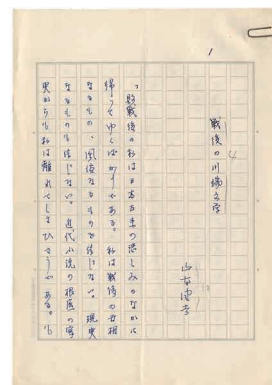 1
戦後の川端文学
「敗戦後の私は日本古来の悲しみのなかに
帰つてゆくばかりである。私は戦後の世相
なるもの、風俗なるものを信じない。現実
なるものも信じない。近代小説の根底の写
実からも私は離れてしまひさうである。も